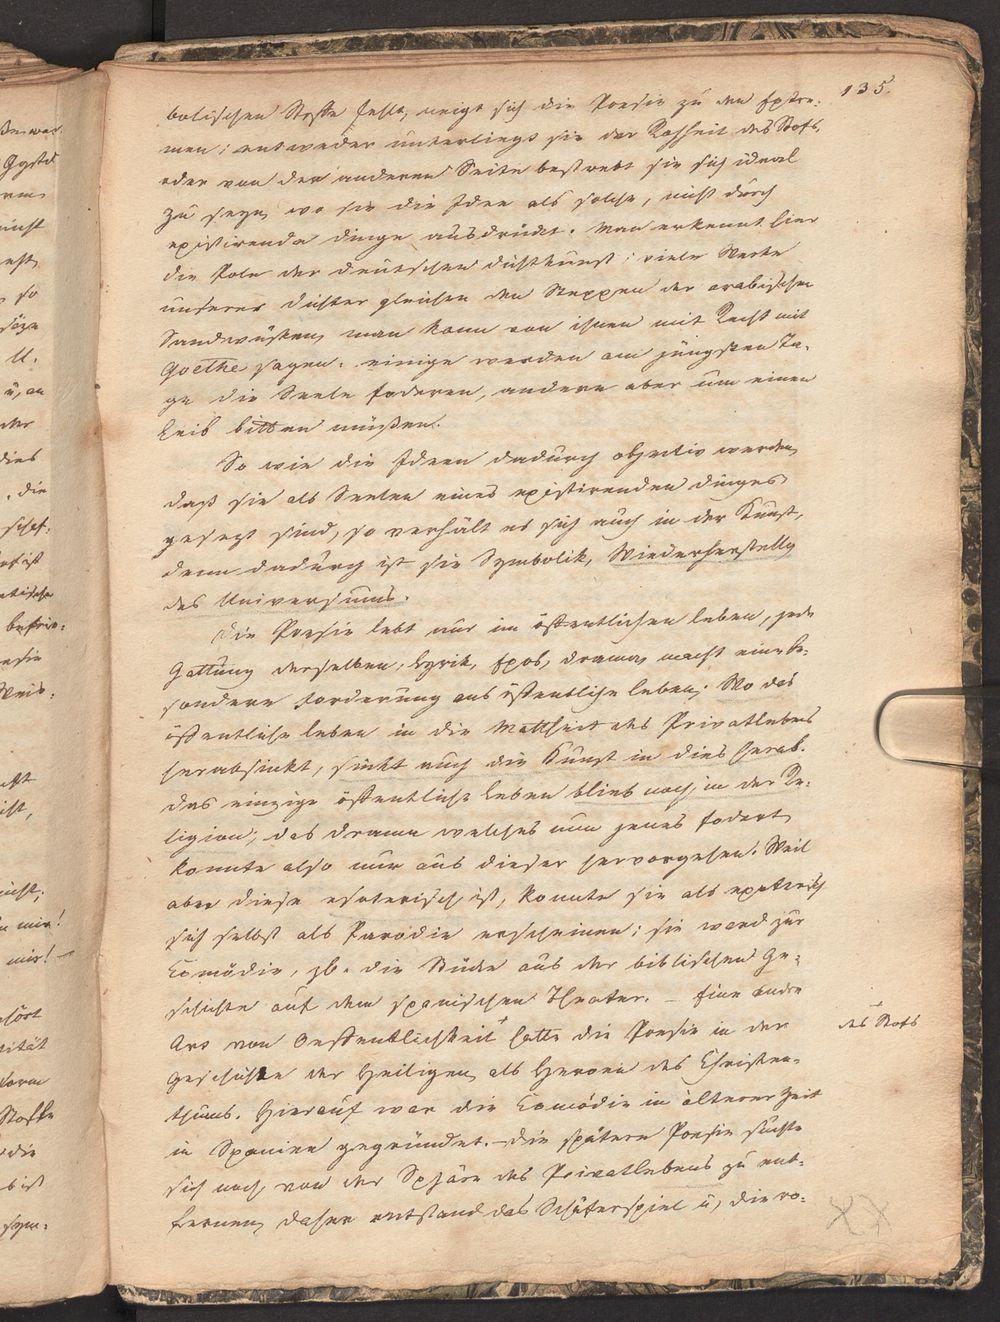 135.
bolischen Stoffe fehlt, neigt sich die Poesie zu den Extre-
men; entweder unterliegt sie der Rohheit des Stoffs,
oder von der anderen Seite bestrebt sie sich ideal
zu seyn, wo sie die Ideen als solche, nicht durch
existirende Dinge ausdrückt. Man erkennt hier
die Pole der deutschen Dichtkunst; viele Werke
unserer Dichter gleichen den Steppen der arabischen
Sandwüsten, man kann von ihnen mit Recht mit
Goethe sagen: einige werden am jüngsten Ta-
ge die Seele foderen, andere aber um einen
Leib bitten müßen.
So wie die Ideen dadurch objectiv werden,
daß sie als Seelen eines existirenden Dinges
gesezt sind, so verhält es sich auch in der Kunst,
denn dadurch ist sie Symbolik, Wiederherstellg
des Universums.
Die Poesie lebt nur im öffentlichen Leben, jede
Gattung derselben, Lyrik, Epos, Drama, macht eine be-
sondere Forderung ans öffentliche Leben. Wo das
öffentliche Leben in die Mattheit des Privatlebens
herabsinkt, sinkt auch die Kunst in dies herab.
Das einzige öffentliche Leben blieb noch in der Re-
ligion; das Drama welches nun jenes fodert,
konnte also nur aus dieser hervorgehen. Weil
aber diese esoterisch ist, konnte sie als exoterisch
sich selbst als Parodie erscheinen; sie ward zur
Comödie, zb. die Stücke aus der biblischen Ge-
schichte auf dem spanischen Theater. – Eine andre
Art von Oeffentlichkeit + hatte die Poesie in der
des Stoffs
Geschichte der Heiligen, als Heroen des Christen-
thums. Hierauf war die Comödie in älterer Zeit
in Spanien gegründet. – Die spätere Poesie suchte
sich noch von der Sphäre des Privatlebens zu ent-
fernen, daher entstand das Schäferspiel u, die ro-